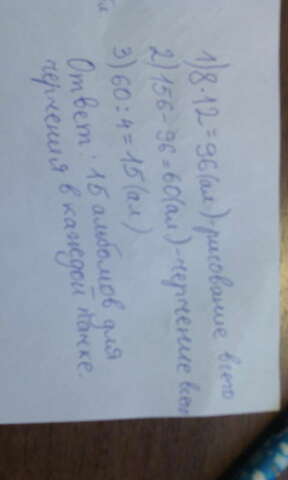 1) 8·12=96(ал)-рисование всего
2) 156-96=60(ал)-черчение всего
3) 60:4=15(ал)
Ответ: 15 альбомов для
черчения в каждой пачке.